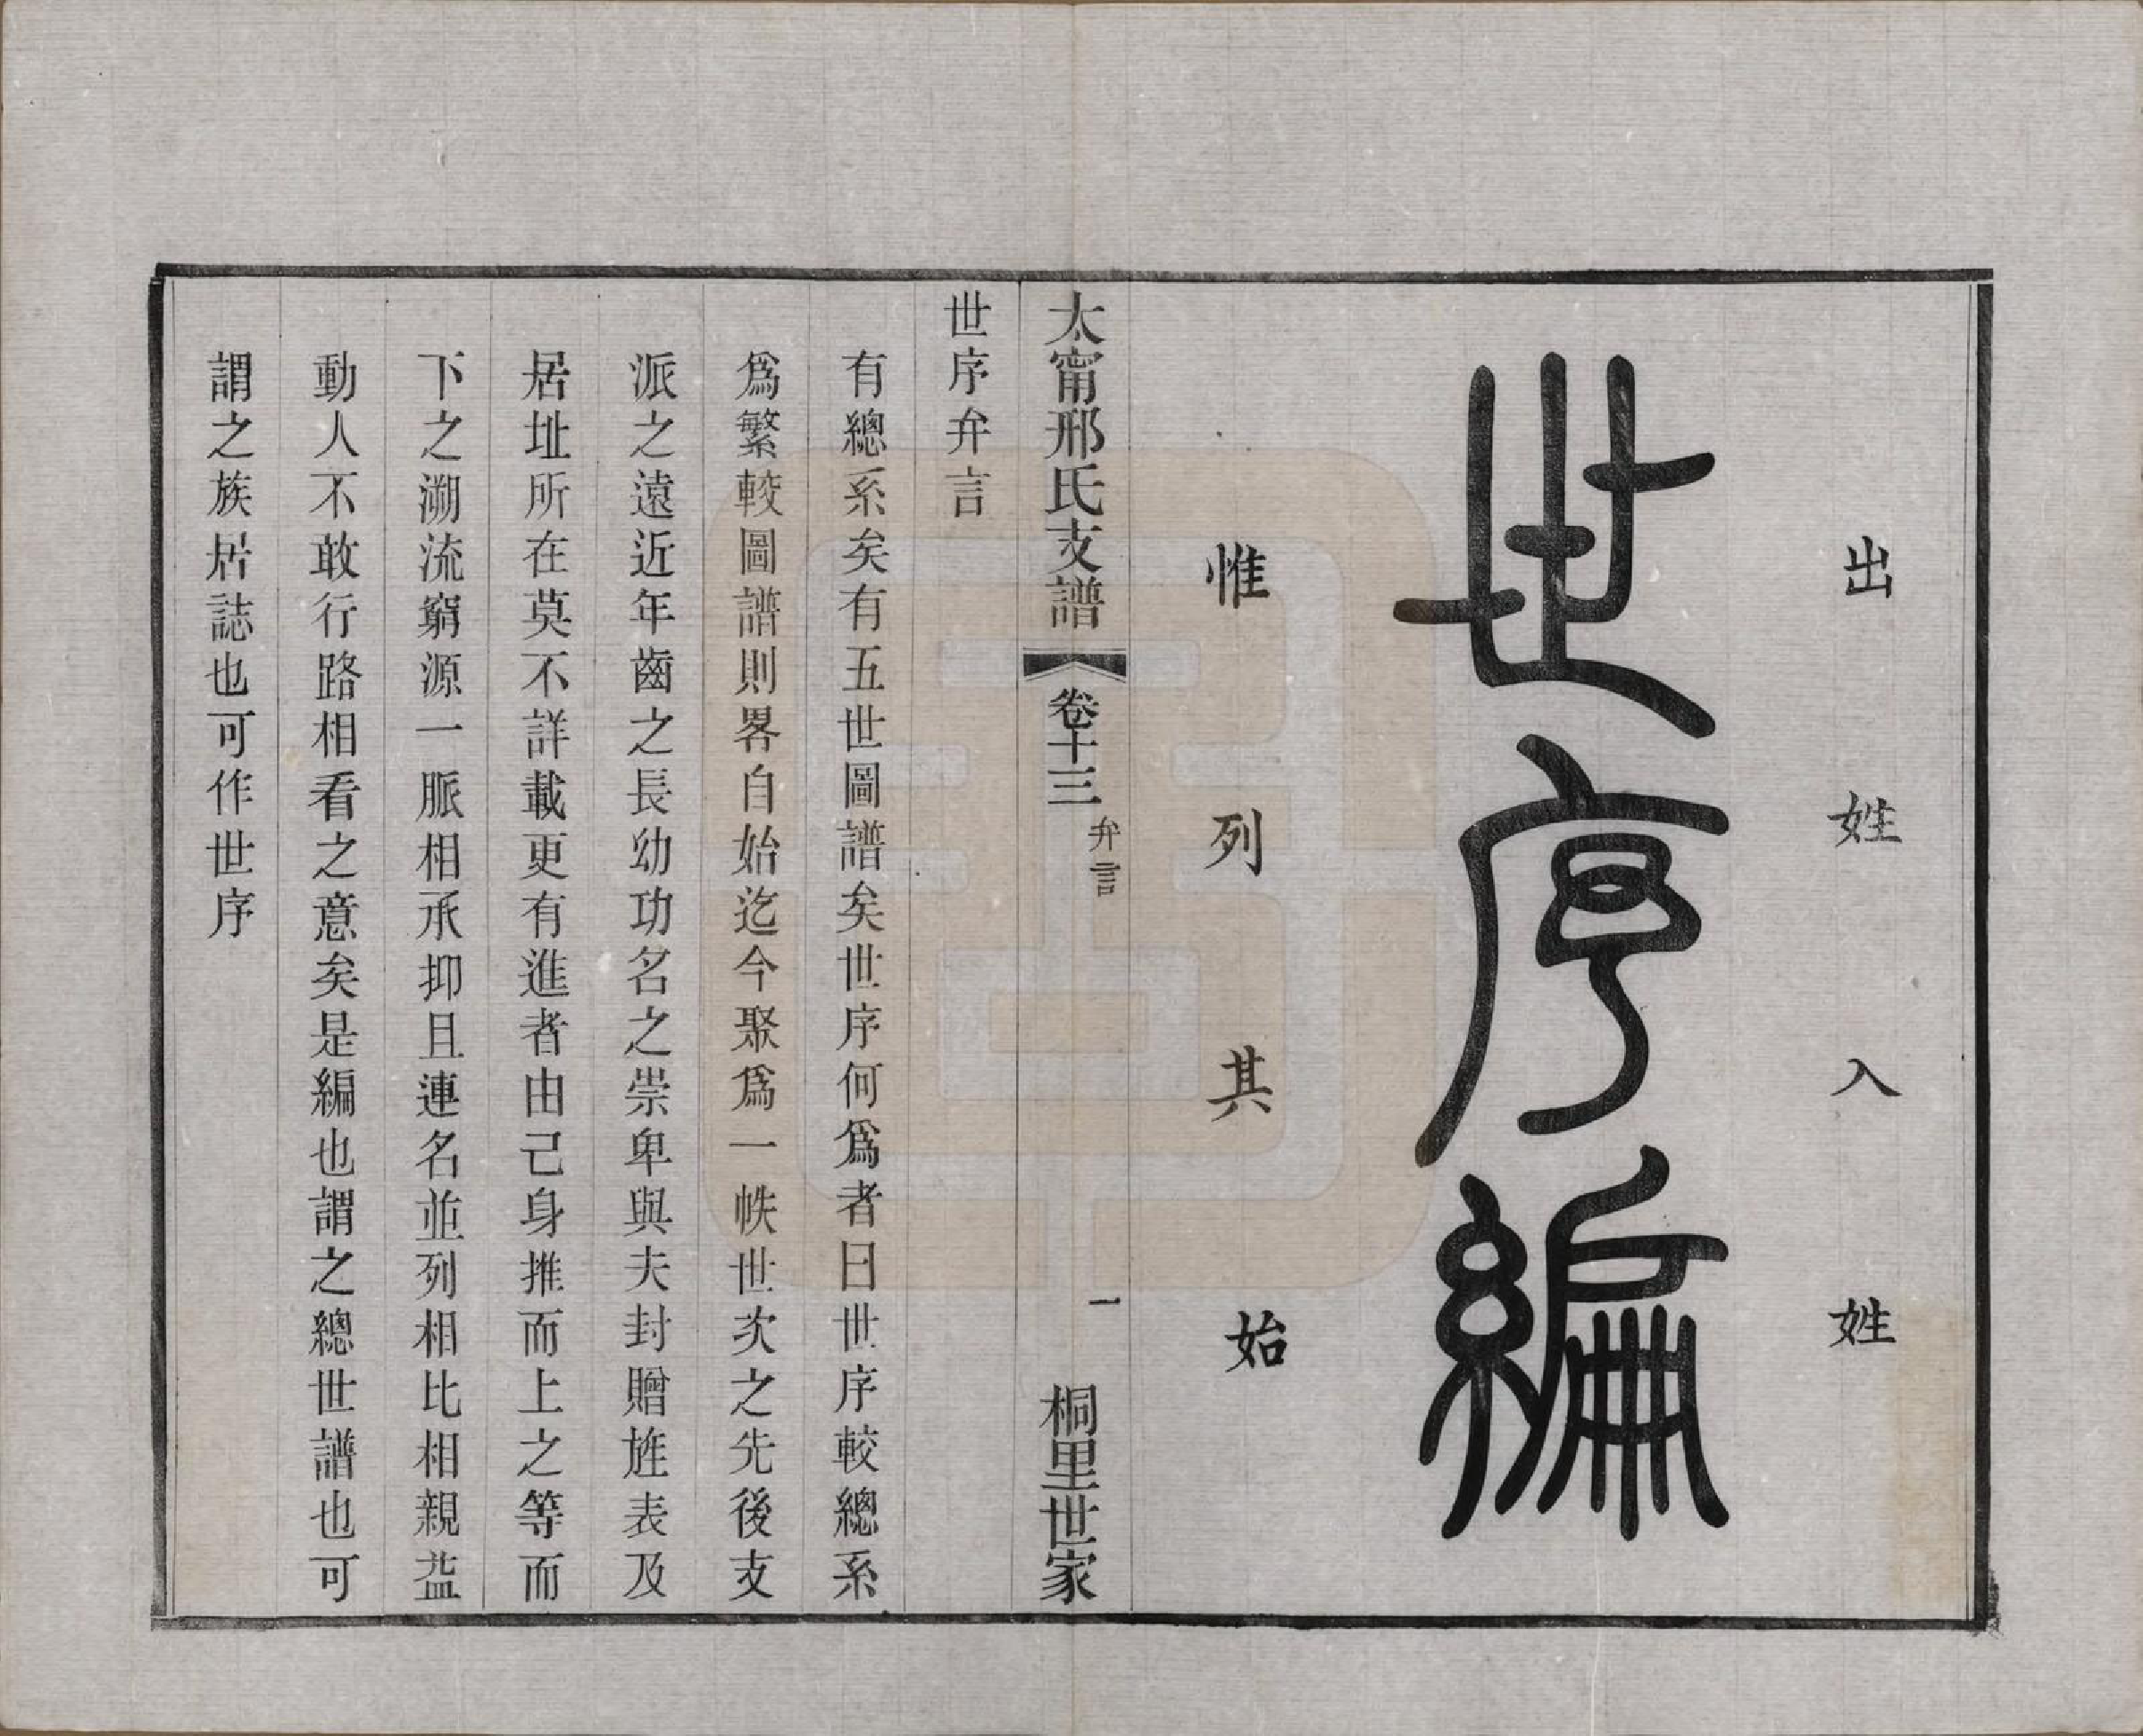 出姓入姓
世序編
惟列其始
太甯邢氏支譜 卷十三 弁言 一 桐里世家
世序弁言
有總系矣有五世圖譜矣世序何爲者曰世序較總系
爲繁較圖譜則畧自始迄今聚爲一帙世次之先後支
派之遠近年齒之長幼功名之崇卑與夫封贈旌表及
居址所在莫不詳載更有進者由己身推而上之等而
下之溯流窮源一脈相承抑且連名並列相比相親益
動人不敢行路相看之意矣是編也謂之總世譜也可
謂之族居誌也可作世序